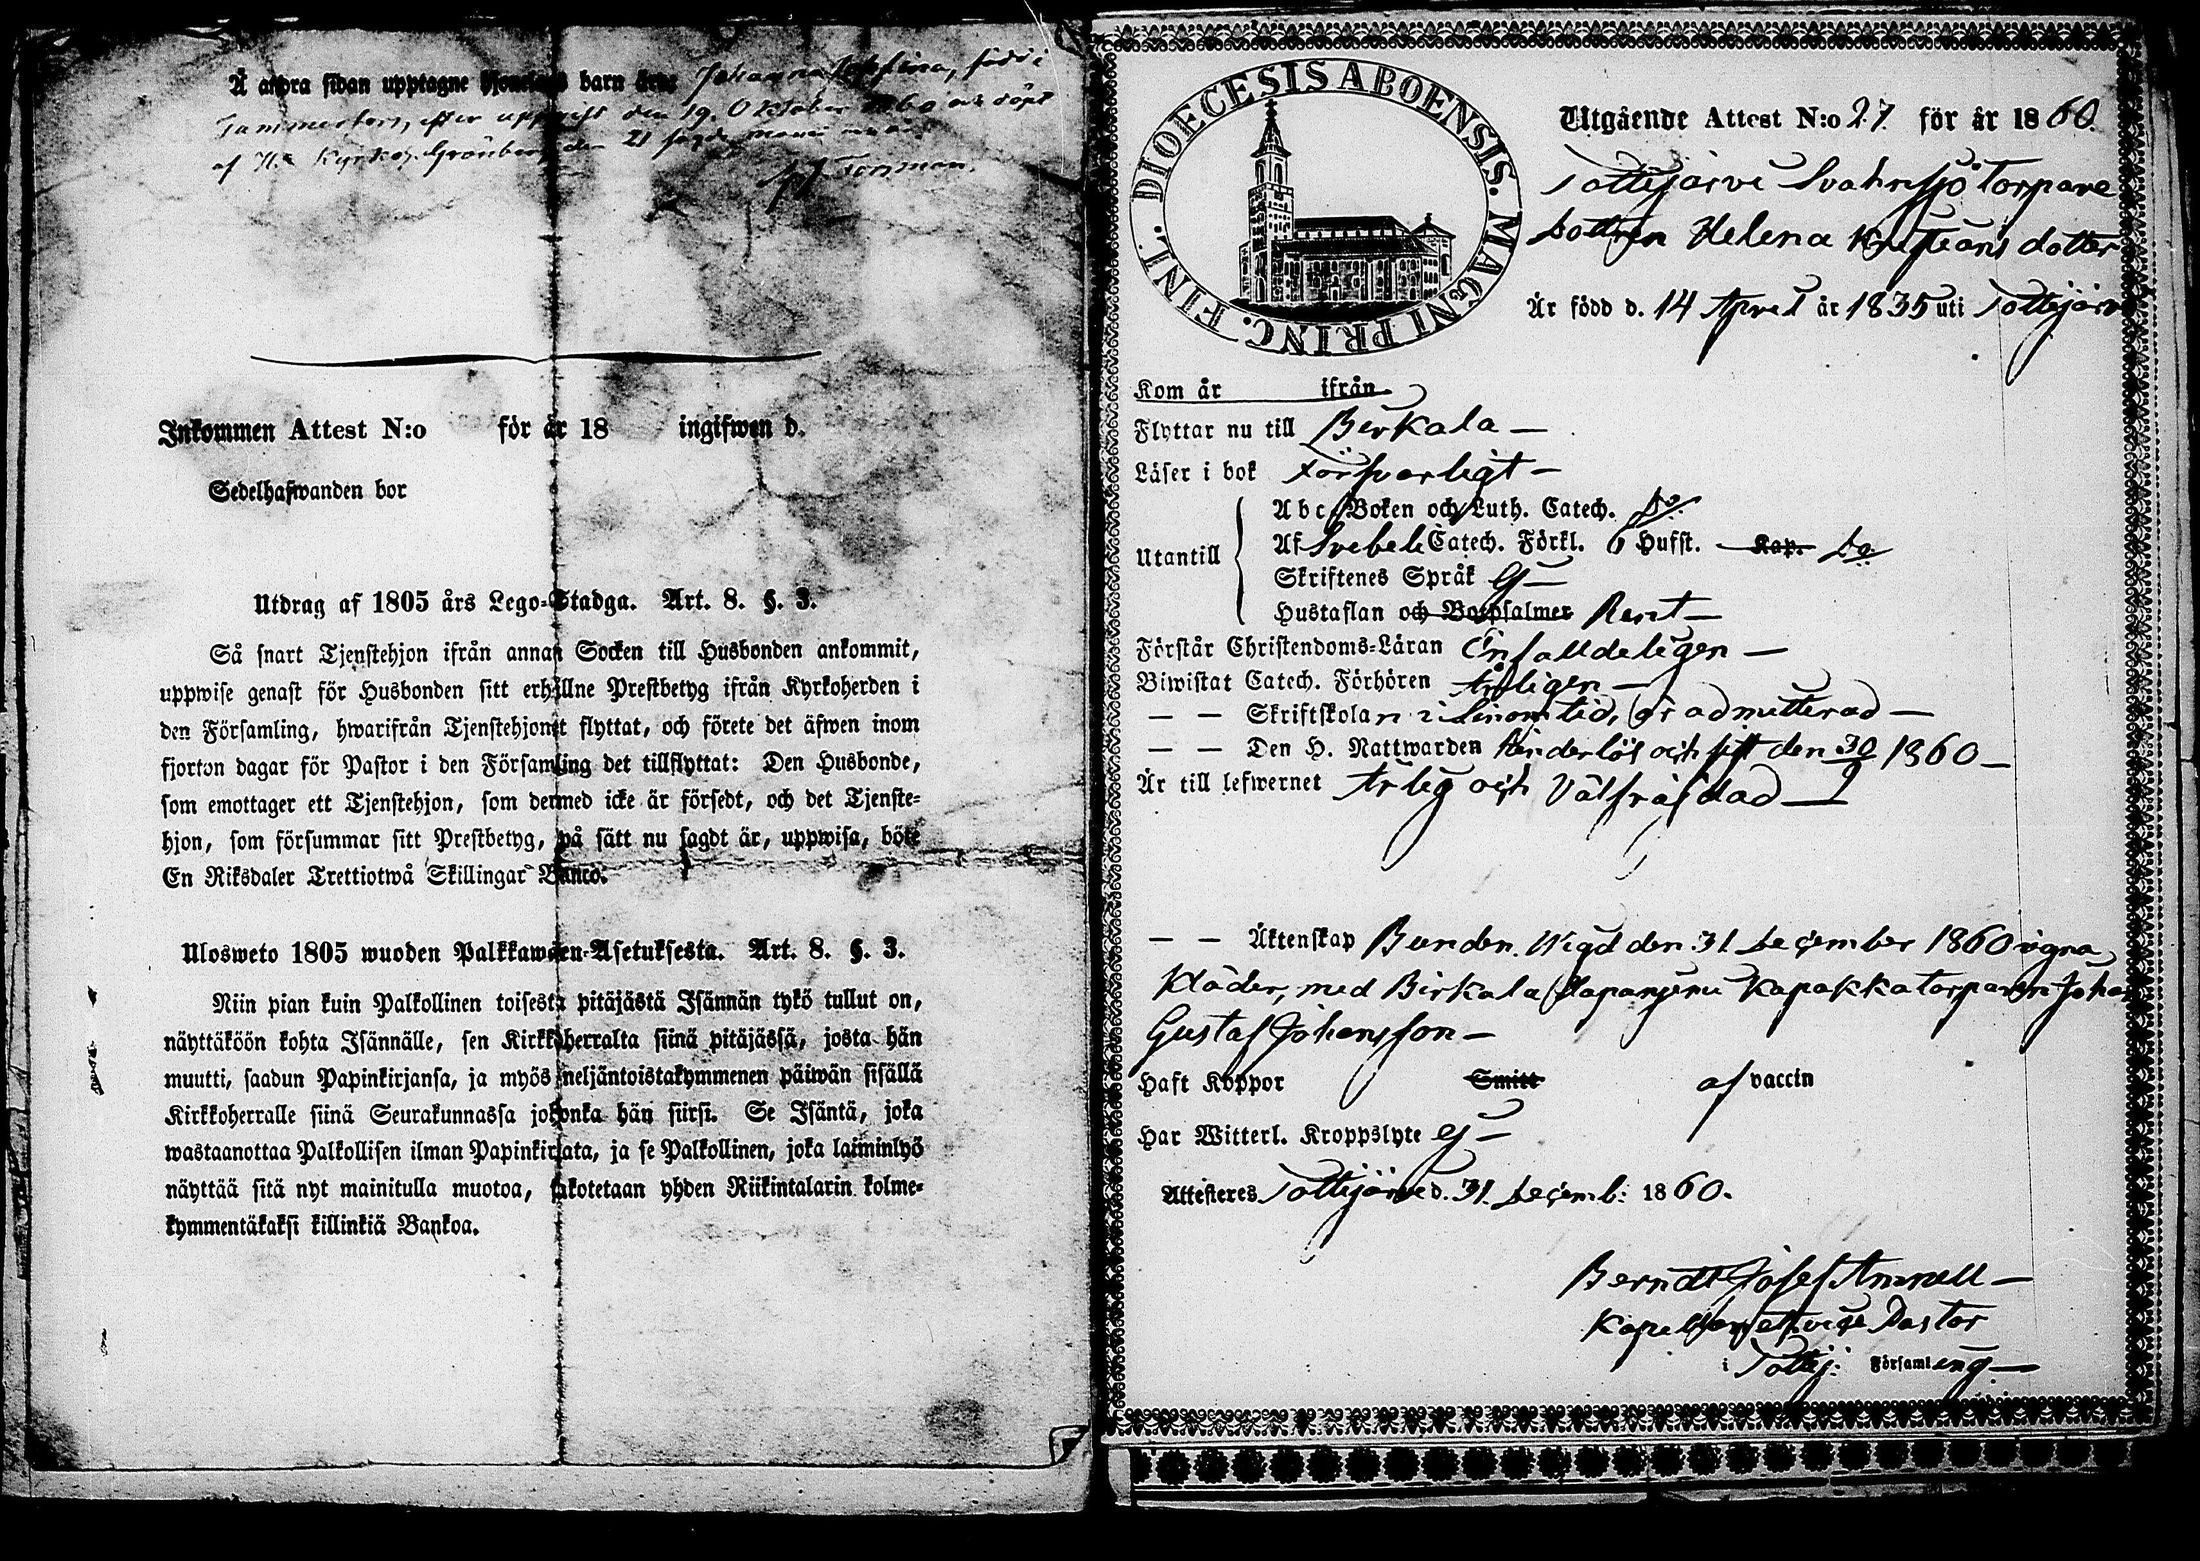 Å andra sidan upptagne hjonelags barn äro: Johanna Josefina, född i
Tammerfors, efter uppgift den 19. Oktober 1860 och döpt
af H:r Kyrkoh. Grönberg den 21 sagde månad
Torpman.
Inkommen Attest N:o för år 18 ingifwen d.
Sedelhafwanden bor
Utdrag af 1805 års Lego-Stadga. Art. 8. §. 3.
Så snart Tjenstehjon ifrån annan Socken till Husbonden ankommit,
uppwise genast för Husbonden sitt erhållne Prestbetyg ifrån Kyrkoherden i
den Församling, hwarifrån Tjenstehjonet flyttat, och förete det äfwen inom
fjorton dagar för Pastor i den Församling det tillflyttat: Den Husbonde,
som emottager ett Tjenstehjon, som dermed icke är försedt, och det Tjenste-
hjon, som försummar sitt Prestbetyg, på sätt nu sagdt är, uppwisa, böte
En Riksdaler Trettiotwå Skillingar Banco.
Ulosweto 1805 wuoden Palkkawäen-Asetuksesta. Art. 8. §. 3.
Niin pian kuin Palkollinen toisesta pitäjästä Isännän tykö tullut on,
näyttäköön kohta Isännälle, sen Kirkkoherralta siinä pitäjässä, josta hän
muutti, saadun Papinkirjansa, ja myös neljäntoistakymmenen päiwän sisällä
Kirkkoherralle siinä Seurakunnassa johonka hän siirsi. Se Isäntä, joka
wastaanottaa Palkollisen ilman Papinkirjata, ja se Palkollinen, joka laiminlyö
näyttää sitä nyt mainitulla muotoa, sakotetaan yhden Riikintalarin kolme-
kymmentäkaksi killinkiä Bankoa.
DIOECESIS ABOENSIS. MAGNI PRINC. FINL.
Utgående Attest N:o 27. för år 1860.
Tottijärvi Svahnsjö Torpare
Dottren Helena Kristians dotter
Är född d. 14 April år 1835 uti Tottijärvi
Kom år ifrån
Flyttar nu till Birkala —
Läser i bok Försvarligt —
Abc-Boken och Luth. Catech. Do
Utantill Af Svebeli Catech. Förkl. 6 Hufst. Kap. Do
Skriftenes Språk Ej —
Hustaflan och Botpsalmer Rent —
Förstår Christendoms-Läran Enfalldeligen —
Biwistat Catech. Förhören Årligen —
— — Skriftskolan i sinom tid, är admitterad —
— — Den H. Nattwarden Hinderlös och sist den 30/9 1860 —
Är till lefwernet Ärlig och Välfräjdad —
— — Äktenskap Bunden. Wigd den 31 December 1860 i egna
kläder, med Birkala Haponjemi Kapakka torparen Johan
Gustaf Johansson —
Haft Koppor Smitt af vaccin
Har Witterl. Kroppslyte Ej —
Attesteres Tottijärvi d. 31. Decemb: 1860.
Berndt Josef Amnell —
Kapellan et vice Pastor
i Tottij: Församling —